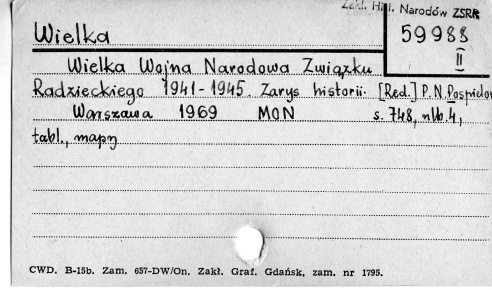 Zakł. Hist. Narodów ZSRR
Wielka
59988
II
Wielka Wojna Narodowa Związku
Radzieckiego 1941-1945. Zarys historii. [Red.] P. N. Pospiełow
Warszawa 1969 MON s. 748, nlb. 4,
tabl., mapy
CWD. B-15b. Zam. 657-DW/On. Zakł. Graf. Gdańsk, zam. nr 1795.